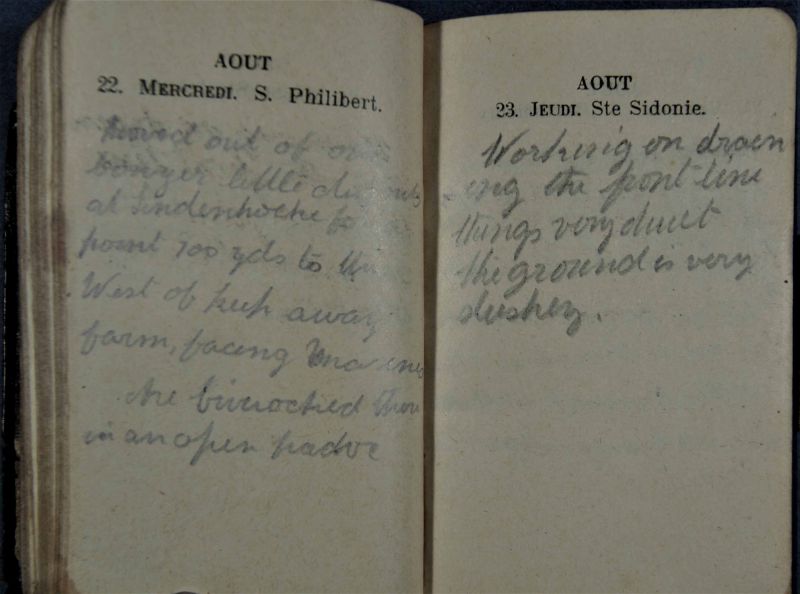 AOUT
22. MERCREDI. S. Philibert.
moved out of our
longer little
at Lindenhoeke
point 700 yds to the
West of keep away
farm, facing
We bivocked there
in an open padoc
AOUT
23. JEUDI. Ste Sidonie.
Working on drain
ing the front line
things very duet
the ground is very
duskey.